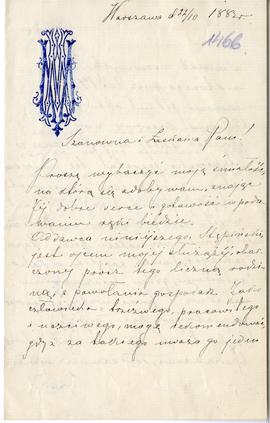 Warszawa d 22/10 1883 r
1466
Szanowna i Łaskawa Pani!
Proszę wybaczyć moją śmiałość,
na którą się zdobywam, znając
Jej dobre serce i gotowość w poda
waniu ręki biedzie.
Oddawca niniejszego, Stępiński
jest ojcem mojej służącej, obar
czony prócz tego liczną rodzi
ną, z powołania gospodarz. Jako
człowieka trzeźwego, pracowitego
i uczciwego, mogę rekomendować,
gdyż za takiego uważa go jeden